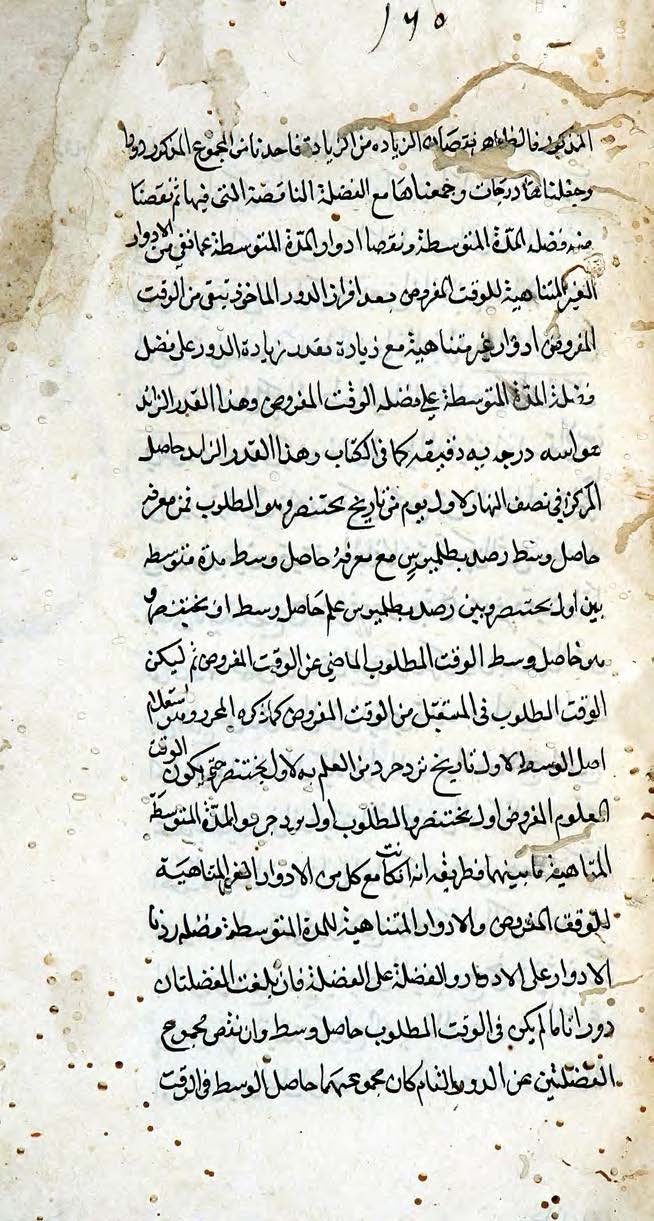 ١٦٥
المذكور فالظاهر نقصان الزياده من الزيادة فاحدنا من المجموع المذكور دورا
وجعلناها درجات وجمعناها مع الفضلة الناقصة التى فيها ثم نقصنا
منه فضله المدة المتوسطة ونقصنا ادوار المدة المتوسطة عما بقى من الادوار
الغير المتناهية للوقت المفروض بعد افراز الدور الماخوذ تبقى من الوقت
المفروض ادوار غير متناهية مع زيادة بقدر زيادة الدور على فضل
فضلة المدة المتوسطة على فضله الوقت المفروض وهذا القدر الزائد
هو اسه درجه يه دقيقه كما فى الكتاب وهذا القدر الزايد حاصل
المركز فى نصف النهار لاول يوم من تاريخ بختنصر وهو المطلوب فمن معرفه
حاصل وسط رصد بطلميوس مع معرفة حاصل وسط مدة متوسطه
بين اول بختنصر وبين رصد بطلميوس علم حاصل وسط اول بختنصر و
هو حاصل وسط الوقت المطلوب الماضى عن الوقت المفروض ثم ليكن
الوقت المطلوب فى المستقبل من الوقت المفروض كما ذكره المحرر وهو استعلام
اصل الوسط لاول تاريخ يزدجرد من العلم به لاول بختنصر حتى يكون الوقت
المعلوم المفروض اول بختنصر والمطلوب اول يزدجرد والمدة المتوسطة
المتناهية ما بينهما فطريقه انه ان كانت مع كل من الادوار الغير المتناهية
للوقت المفروض والادوار المتناهية للمدة المتوسطة فضله زدنا
الادوار على الادوار والفضلة على الفضلة فان بلغت الفضلتان
دورا تاما لم يكن فى الوقت المطلوب حاصل وسط وان نقص مجموع
الفضلتين عن الدور التام كان مجموعهما حاصل الوسط فى الوقت